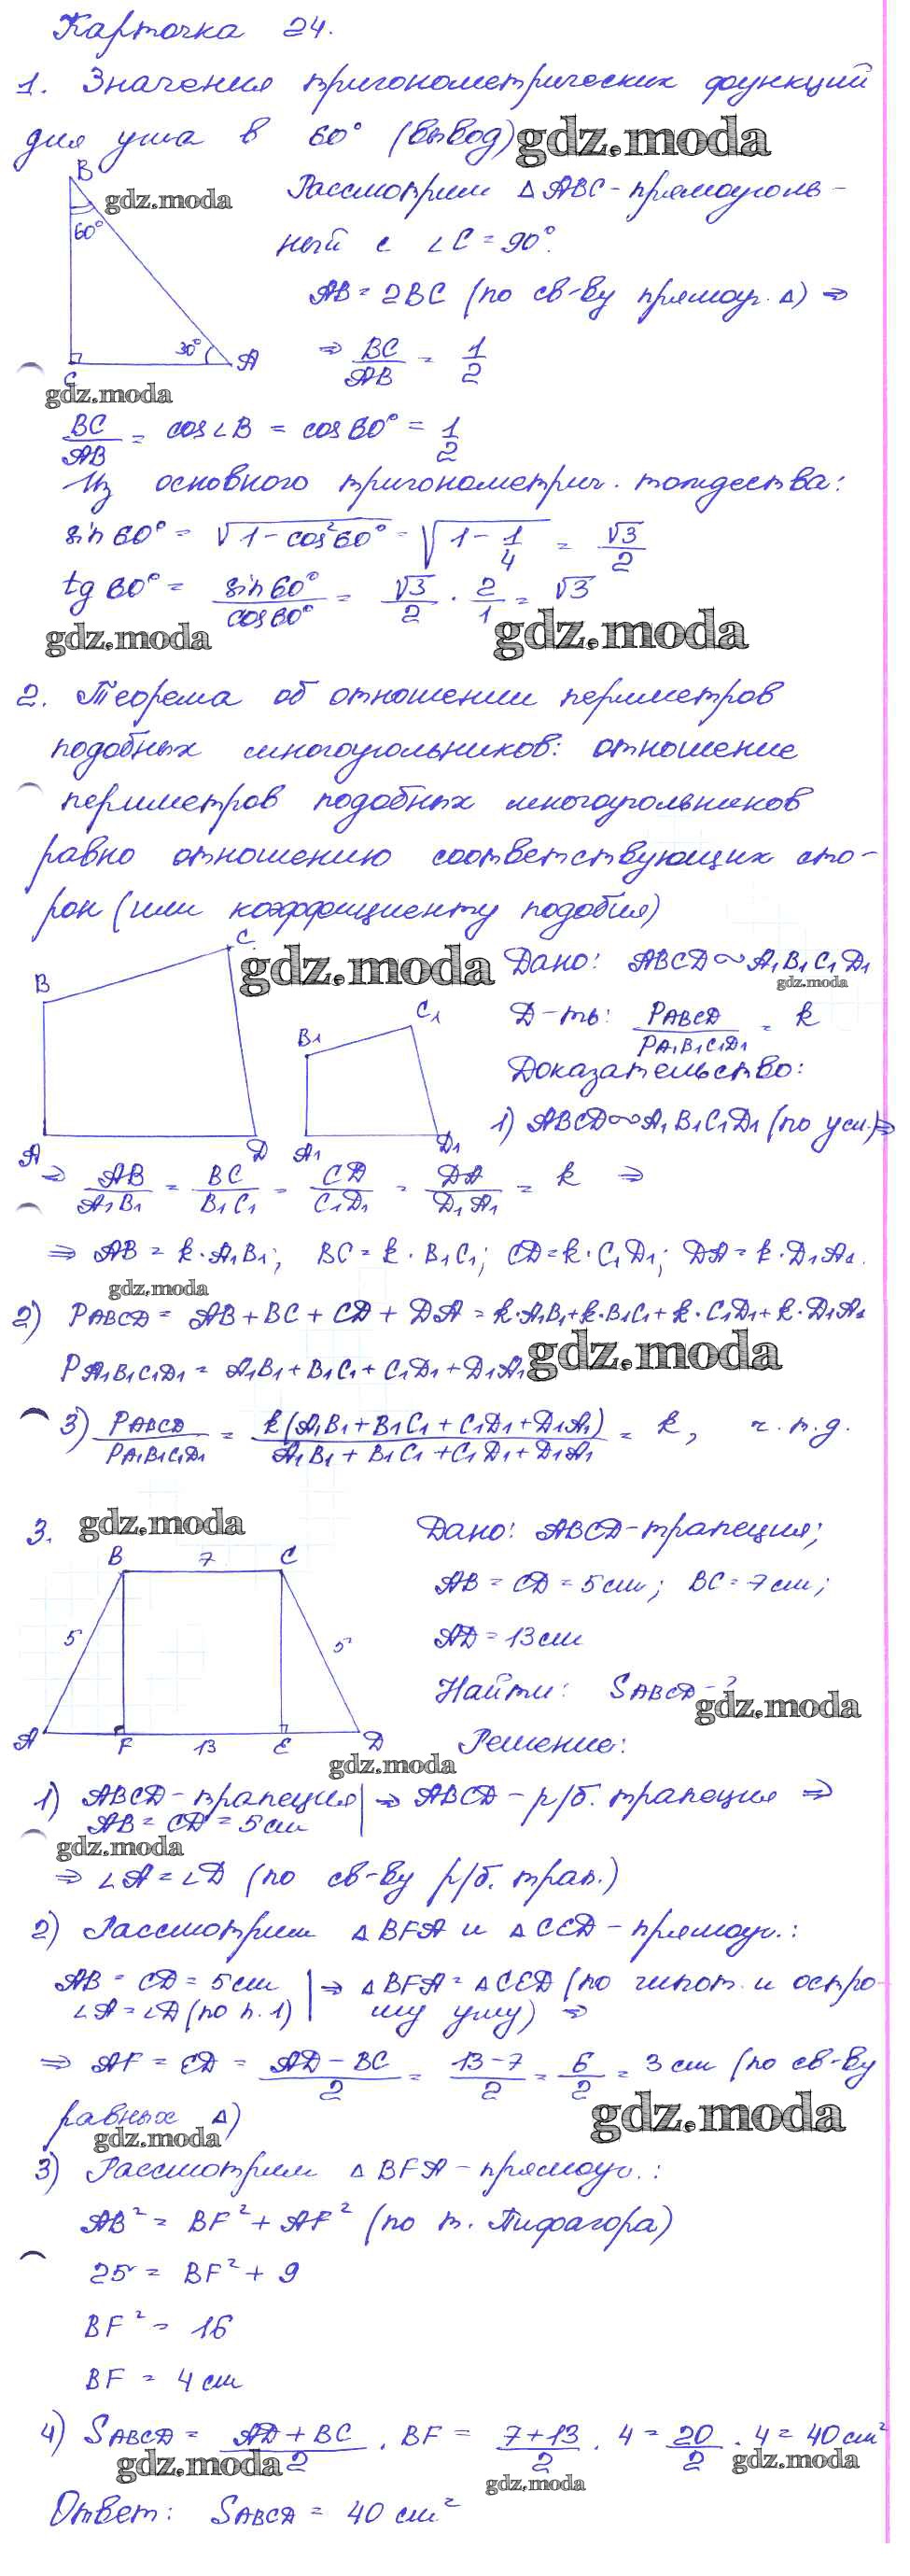 Карточка 24.
1. Значения тригонометрических функций
для угла в 60° (вывод) gdz.moda
B
gdz.moda
60°
30°
A
C
gdz.moda
Рассмотрим △ABC - прямоуголь-
ный с ∠C = 90°.
AB = 2BC (по св-ву прямоуг. △) ⇒
⇒ BC/AB = 1/2
BC/AB = cos∠B = cos60° = 1/2
Из основного тригонометрич. тождества:
sin60° = √(1 - cos²60°) = √(1 - 1/4) = √3/2
tg60° = sin60°/cos60° = √3/2 · 2/1 = √3
gdz.moda gdz.moda
2. Теорема об отношении периметров
подобных многоугольников: отношение
периметров подобных многоугольников
равно отношению соответствующих сто-
рон (или коэффициенту подобия)
B C A D
B1 C1 A1 D1
gdz.moda
Дано: ABCD ∾ A1B1C1D1
gdz.moda
Д-ть: PABCD/PA1B1C1D1 = k
Доказательство:
1) ABCD ∾ A1B1C1D1 (по усл.) ⇒
⇒ AB/A1B1 = BC/B1C1 = CD/C1D1 = DA/D1A1 = k ⇒
⇒ AB = k·A1B1; BC = k·B1C1; CD = k·C1D1; DA = k·D1A1.
gdz.moda
2) PABCD = AB + BC + CD + DA = k·A1B1 + k·B1C1 + k·C1D1 + k·D1A1
PA1B1C1D1 = A1B1 + B1C1 + C1D1 + D1A1 gdz.moda
3) PABCD/PA1B1C1D1 = k(A1B1 + B1C1 + C1D1 + D1A1)/A1B1 + B1C1 + C1D1 + D1A1 = k, ч.т.д.
3. gdz.moda
B 7 C
5 5
A F 13 E D
gdz.moda
Дано: ABCD - трапеция;
AB = CD = 5 см; BC = 7 см;
AD = 13 см
Найти: SABCD - ?
gdz.moda
Решение:
1) ABCD - трапеция | ⇒ ABCD - р/б. трапеция ⇒
AB = CD = 5 см
gdz.moda
⇒ ∠A = ∠D (по св-ву р/б. трап.)
2) Рассмотрим △BFA и △CED - прямоуг.:
AB = CD = 5 см | ⇒ △BFA = △CED (по гипот. и остро-
∠A = ∠D (по п. 1) | му углу) ⇒
⇒ AF = ED = AD - BC/2 = 13 - 7/2 = 6/2 = 3 см (по св-ву
равных △)
gdz.moda
gdz.moda
3) Рассмотрим △BFA - прямоуг.:
AB² = BF² + AF² (по т. Пифагора)
25 = BF² + 9
BF² = 16
BF = 4 см
4) SABCD = AD + BC/2 · BF = 7 + 13/2 · 4 = 20/2 · 4 = 40 см²
gdz.moda gdz.moda gdz.moda
Ответ: SABCD = 40 см²